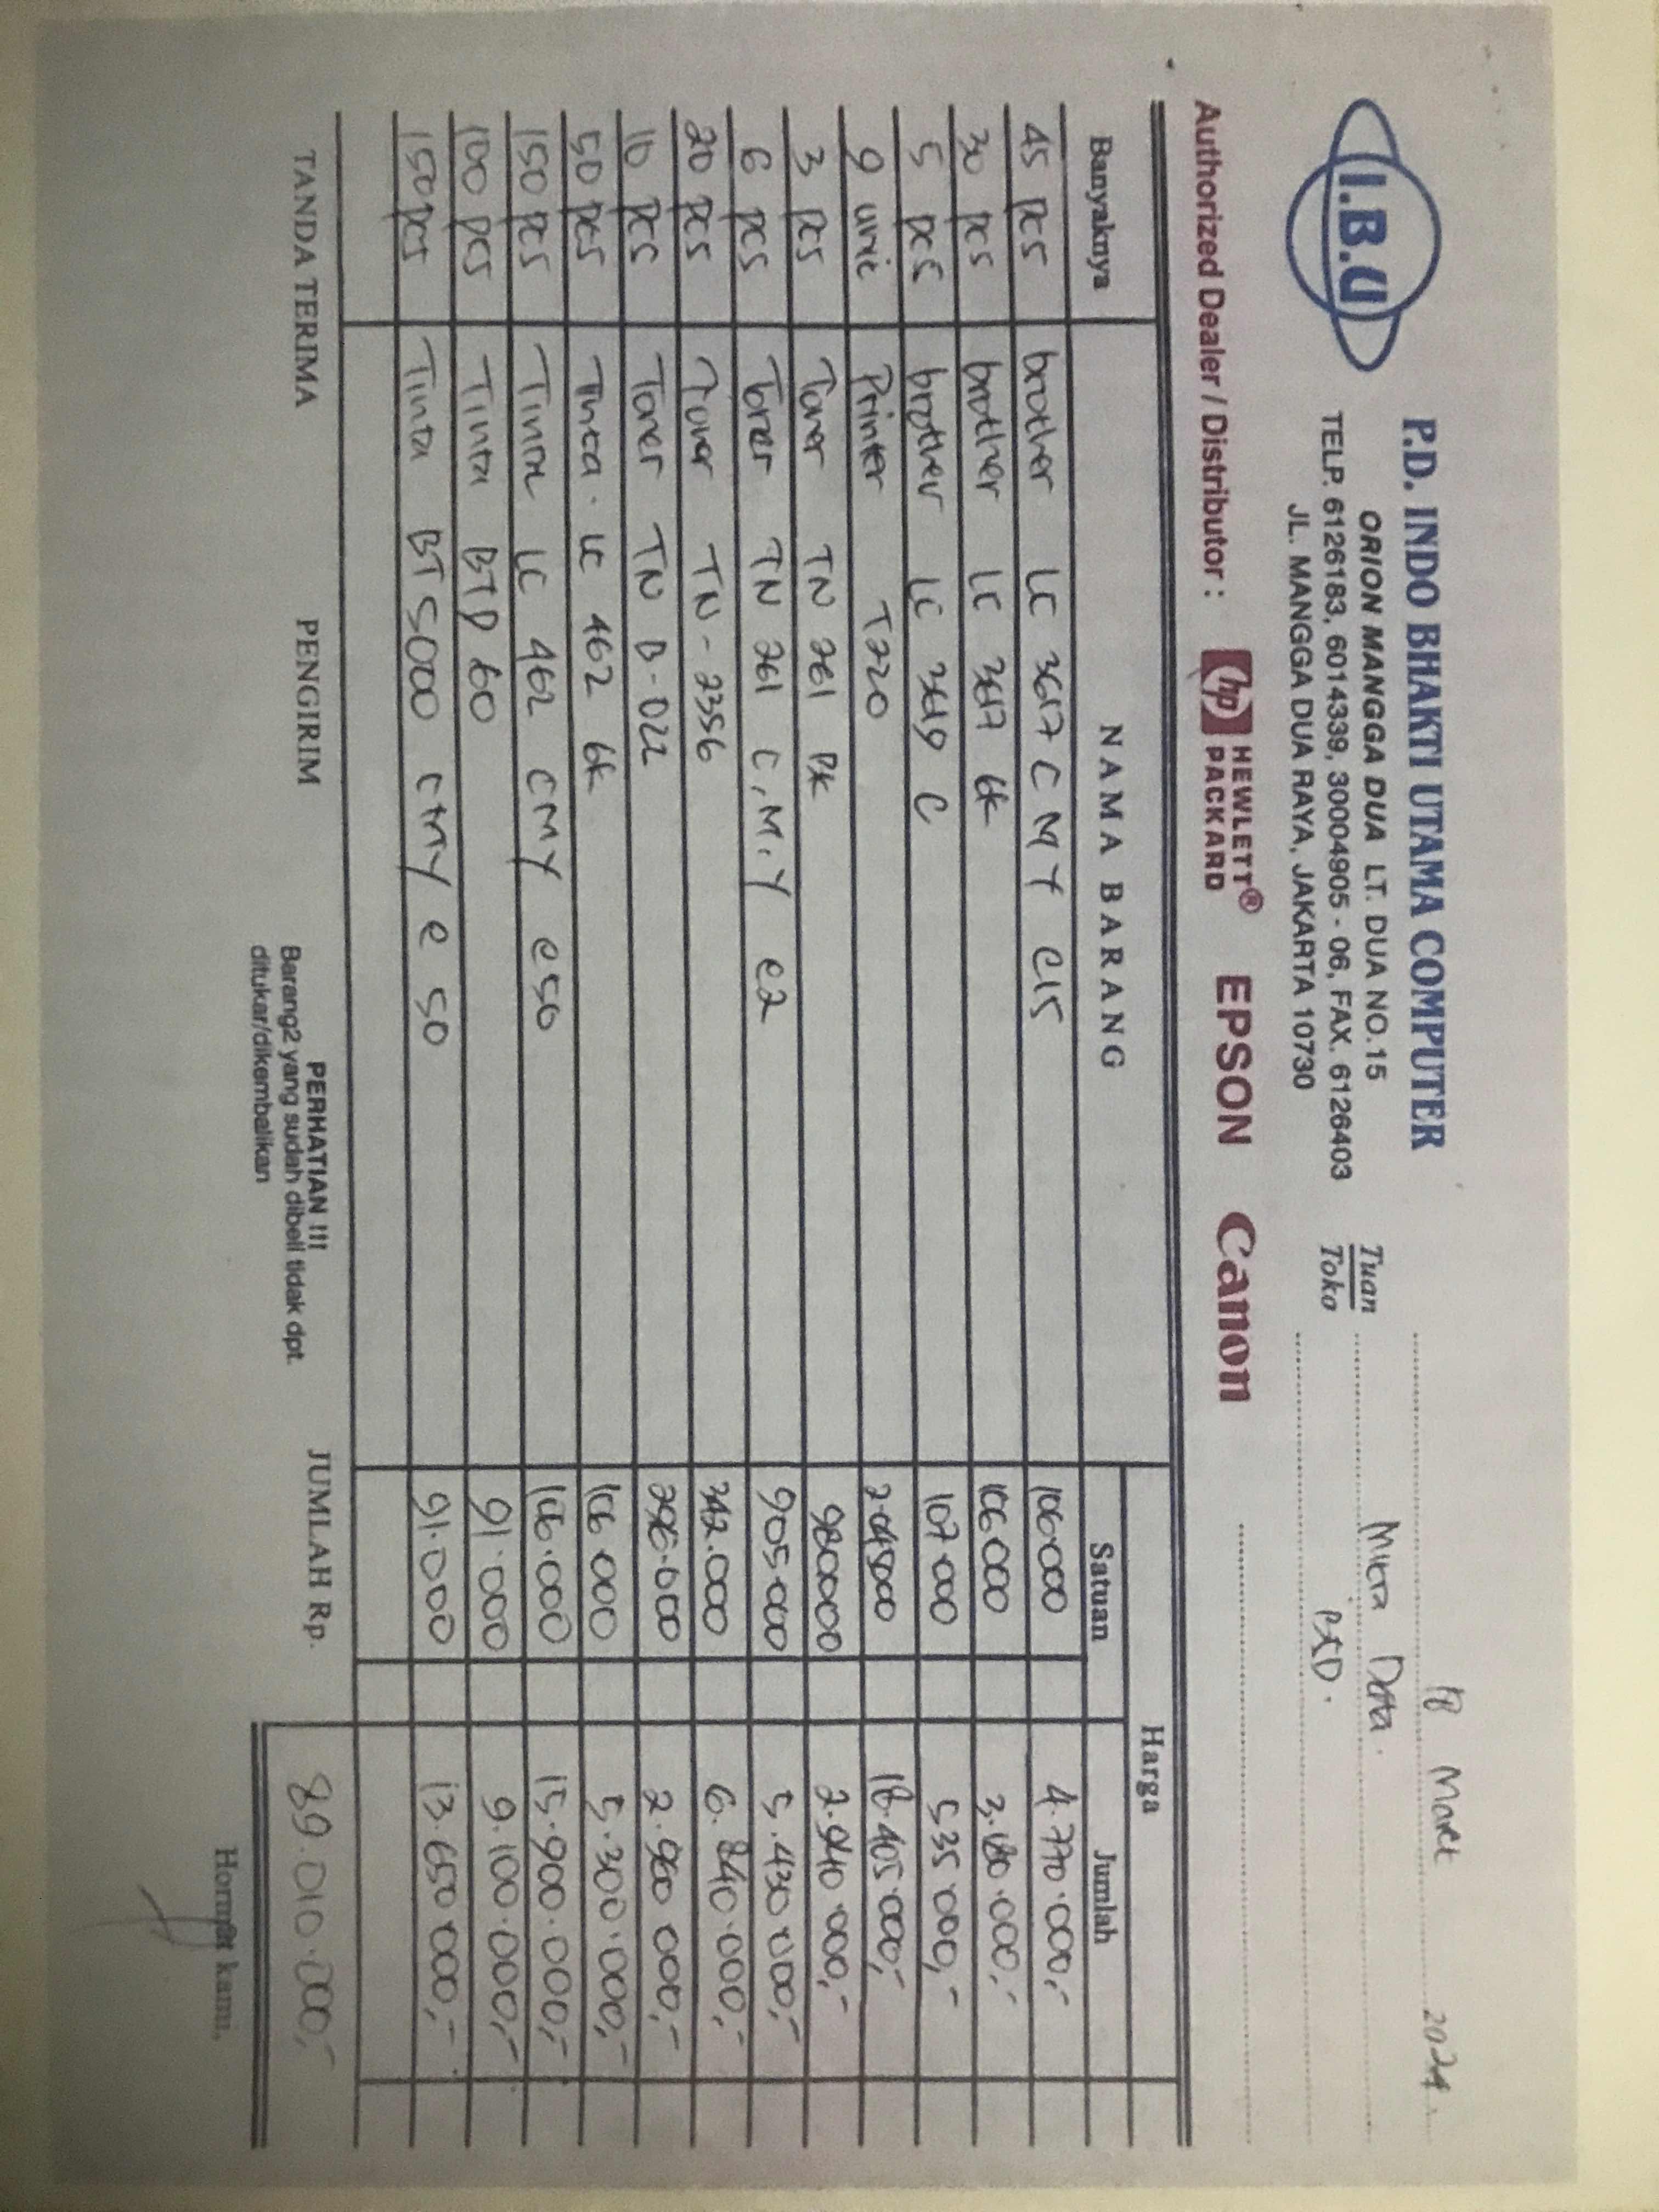 I.B.U
P.D. INDO BHAKTI UTAMA COMPUTER
ORION MANGGA DUA LT. DUA NO.15
TELP. 6126183, 6014339, 30004905 - 06, FAX. 6126403
JL. MANGGA DUA RAYA, JAKARTA 10730
18 Maret 2024
Tuan
Toko
Mitra Data.
PXD.
Authorized Dealer / Distributor : hp HEWLETT® PACKARD EPSON Canon
Banyaknya NAMA BARANG Harga
Satuan Jumlah
45 pcs brother LC 3617 C M Y e15 106.000 4.770.000,-
30 pcs brother LC 3617 bk 106.000 3.180.000,-
5 pcs brother LC 3619 C 107.000 535.000,-
9 unit Printer T220 2.045000 18.405.000,-
3 pcs Toner TN 261 BK 980000 2.940.000,-
6 pcs Toner TN 261 C,M,Y e2 905.000 5.430.000,-
20 pcs Toner TN-2356 342.000 6.840.000,-
10 pcs Toner TN B-022 296.000 2.960.000,-
50 pcs Tinta LC 462 bk 106.000 5.300.000,-
150 pcs Tinta LC 462 CMY e50 106.000 15.900.000,-
100 pcs Tinta BTD 60 91.000 9.100.000,-
150 pcs Tinta BT 5000 CMY e 50 91.000 13.650.000,-
TANDA TERIMA PENGIRIM PERHATIAN !!! JUMLAH Rp. 89.010.000,-
Barang2 yang sudah dibeli tidak dpt.
ditukar/dikembalikan
Hormat kami,